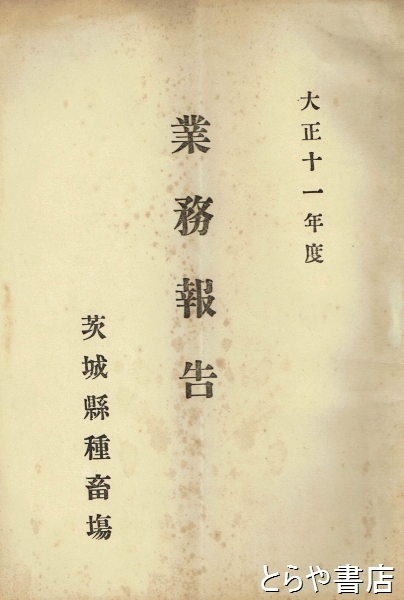 大正十一年度
業務報告
茨城縣種畜塲
とらや書店